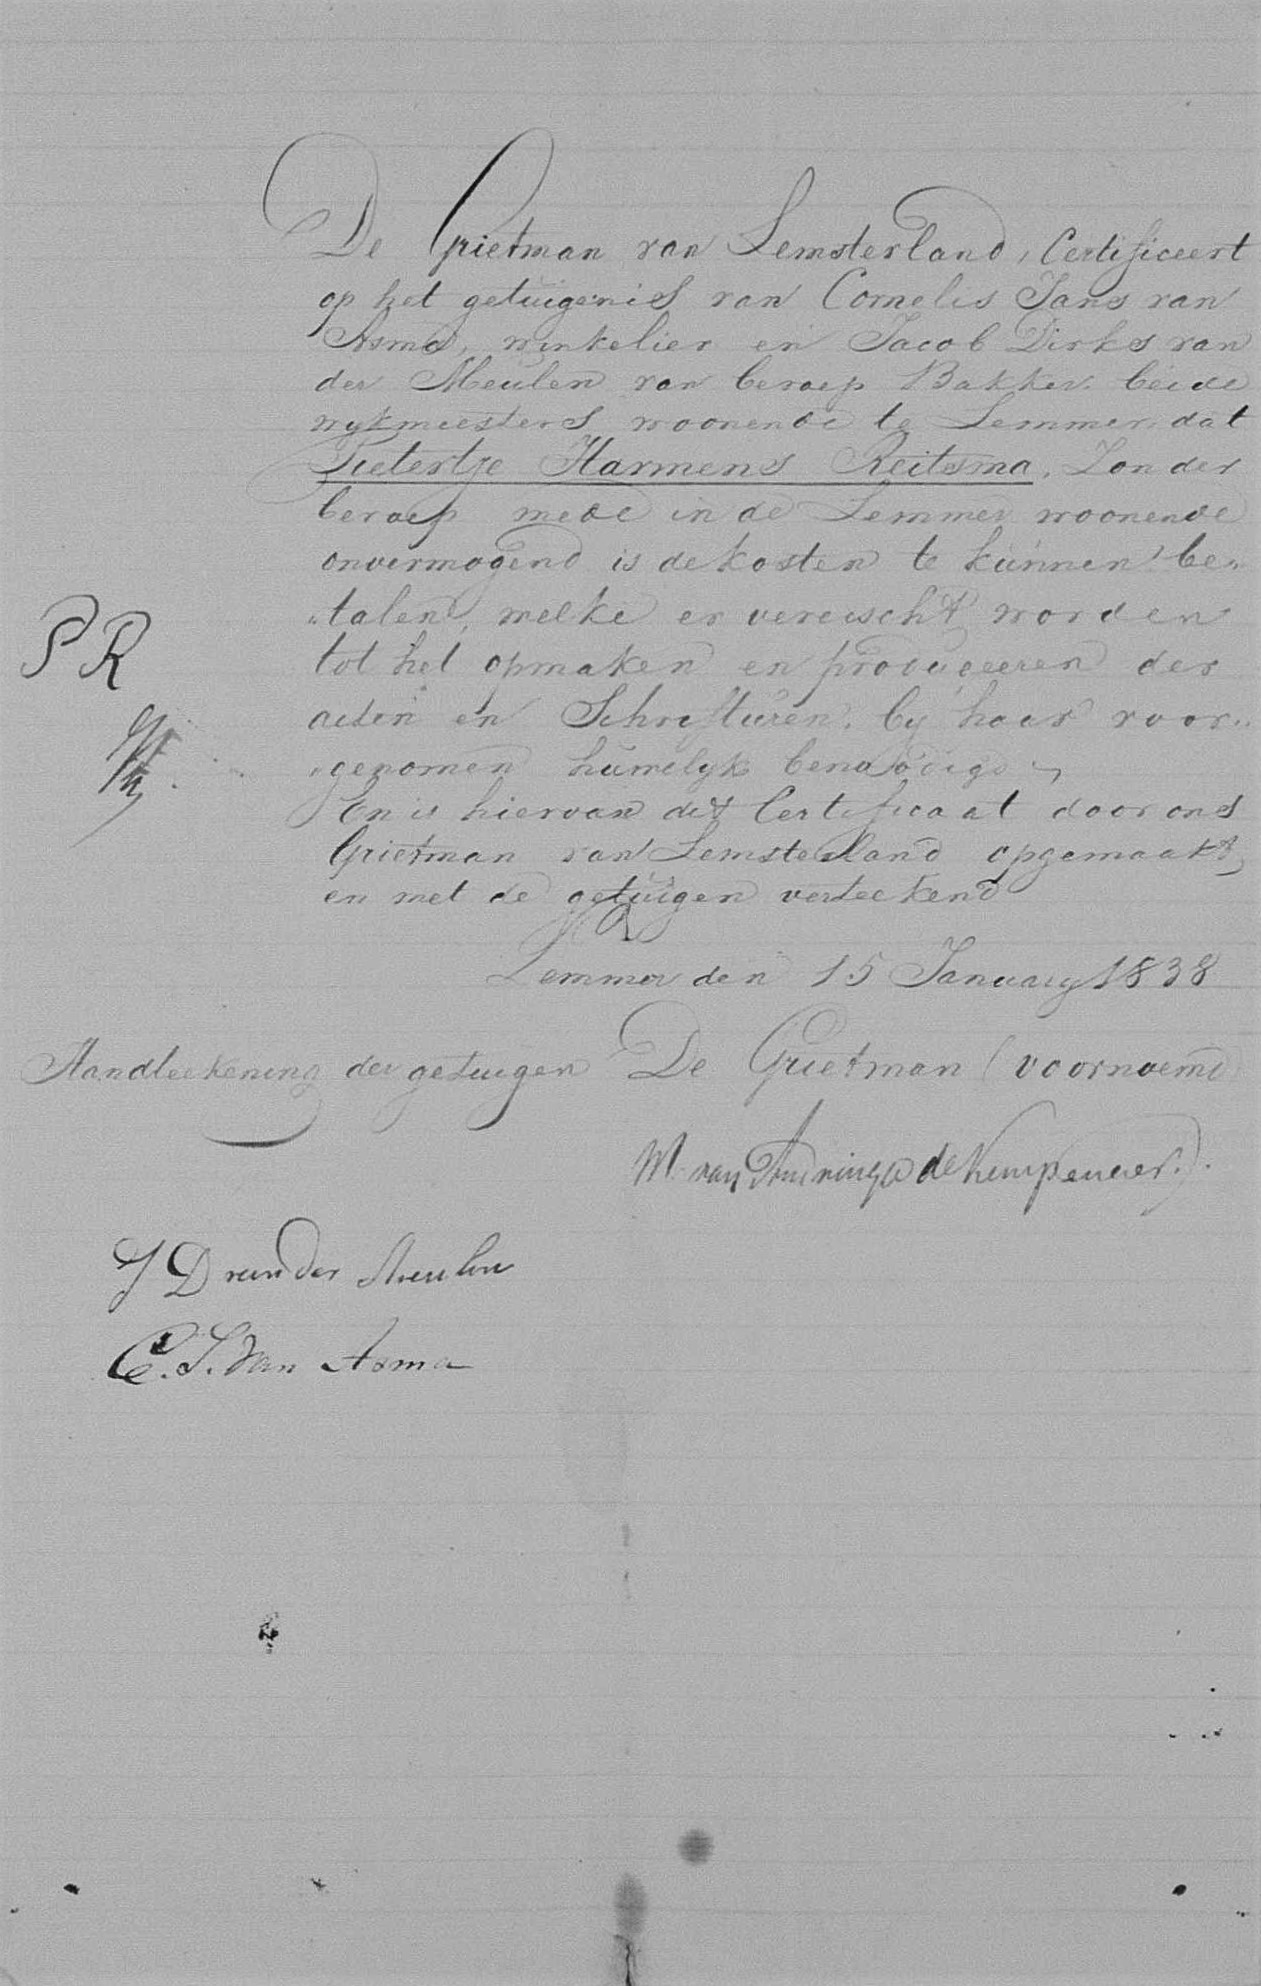 De Grietman van Lemsterland, Certificeert
op het getuigenis van Cornelis Jans van
Asma, winkelier en Jacob Dirks van
der Meulen van beroep Bakker beide
wykmeesters woonende te Lemmer, dat
Tietertje Harmens Reitsma, Zonder
beroep mede in de Lemmer woonende
onvermogend is de kosten te kunnen be„
„talen, welke er vereischt worden
tot het opmaken en produceeren der
acten en Schrifturen, by haar voor„
P R
„genomen humelyk benoodigd
En is hiervan dit Certificaat door ons
Grietman van Lemsterland opgemaakt,
en met de getuigen verteekend
Lemmer den 15 January 1838
Handteekening der getuigen De Grietman (voornoemd)
M van Andringa de Kempenaer.
J D van der Meulen
C. J. Van Asma